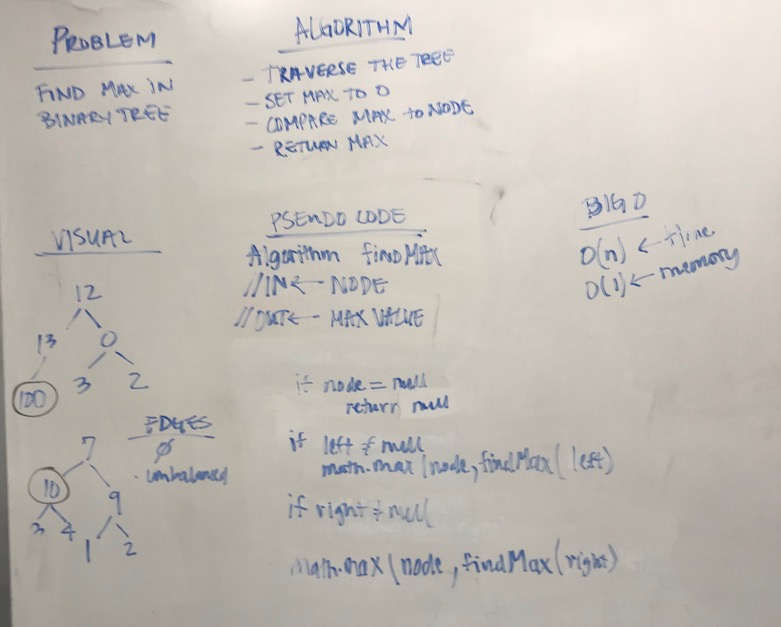 PROBLEM
FIND MAX IN
BINARY TREE
ALGORITHM
- TRAVERSE THE TREE
- SET MAX TO 0
- COMPARE MAX to NODE
- RETURN MAX
VISUAL
12
13 0
100 3 2
EDGES
Ø
· unbalanced
7
10 9
3 4 1 2
PSEUDO CODE
Algorithm findMAX
//IN← NODE
//OUT← MAX VALUE
if node = null
return null
if left ≠ null
math.max(node, findMax(left)
if right ≠ null
Math.max(node, findMax(right)
BIG O
O(n) ← time
O(1) ← memory